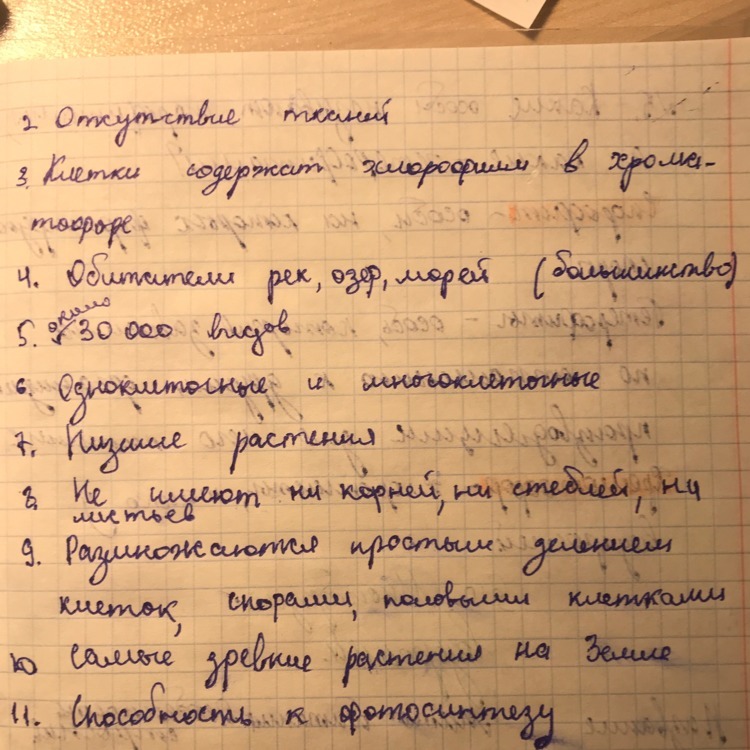 2. Отсутствие тканей
3. Клетки содержат хлорофилл в хрома-
тофоре
4. Обитатели рек, озёр, морей (большинство)
5. около 30 000 видов
6. Одноклеточные и многоклеточные
7. Низшие растения
8. Не имеют ни корней, ни стеблей, ни
листьев
9. Размножаются простым делением
клеток, спорами, половыми клетками
10 Самые древние растения на Земле
11. Способность к фотосинтезу